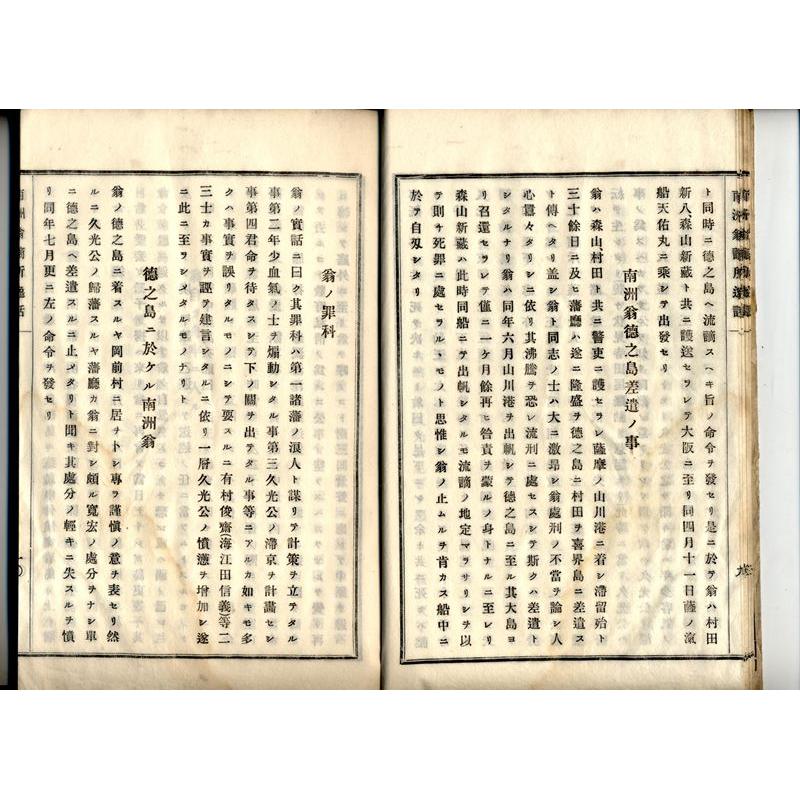 ト同時ニ德之島ヘ流謫スヘキ旨ノ命令ヲ發セリ是ニ於テ翁ハ村田
新八、森山新藏ト共ニ護送セラレテ大阪ニ至リ同四月十一日薩ノ滊
船天佑丸ニ乘シテ出發セリ
南洲翁德之島差遣ノ事
翁ハ森山、村田ト共ニ警吏ニ護セラレ薩摩ノ山川港ニ着シ滯留殆ト
三十餘日ニ及ヒ藩廳ハ遂ニ隆盛ヲ德之島ニ村田ヲ喜界島ニ差遣ス
ト傳ヘタリ蓋シ翁ト同志ノ士ハ大ニ激昂シ翁處刑ノ不當ヲ論シ人
心囂々タリシニ依リ其沸騰ヲ恐レ流刑ニ處セスシテ斯クハ差遣ト
シタルナリ翁ハ同年六月山川港ヲ出帆シテ德之島ニ至ル其大島ヨ
リ召還セラレテ僅ニ一ヶ月餘再ヒ咎責ヲ蒙ルノ身トナルニ至レリ
森山新藏ハ此時同船ニテ出帆シタルモ流謫ノ地定マラサリシヲ以
テ則チ死罪ニ處セラル丶モノト思惟シ翁ノ止ムルヲ肯カス船中ニ
於テ自刄シタリ
翁ノ罪科
翁ノ實話ニ曰ク其罪科ハ第一諸藩ノ浪人ト謀リテ計策ヲ立テタル
事第二年少血氣ノ士ヲ煽動シタル事第三久光公ノ滯京ヲ計畫セシ
事第四君命ヲ待タスシテ下ノ關ヲ出テタル事等ニアルカ如キモ多
クハ事實ヲ誤リタルモノニシテ要スルニ有村俊齋(海江田信義)等二
三士カ事實ヲ誣テ建言シタルニ依リ一層久光公ノ憤懣ヲ增加シ遂
ニ此ニ至ラシメタルモノナリト
德之島ニ於ケル南洲翁
翁ノ德之島ニ着スルヤ岡前村ニ居ヲトシ專ラ謹愼ノ意ヲ表セリ然
ルニ久光公ノ歸藩スルヤ藩廳カ翁ニ對シ頗ル寬宏ノ處分ヲナシ單
ニ德之島ヘ差遣スルニ止メタリト聞キ其處分ノ輕キニ失スルヲ憤
リ同年七月更ニ左ノ命令ヲ發セリ